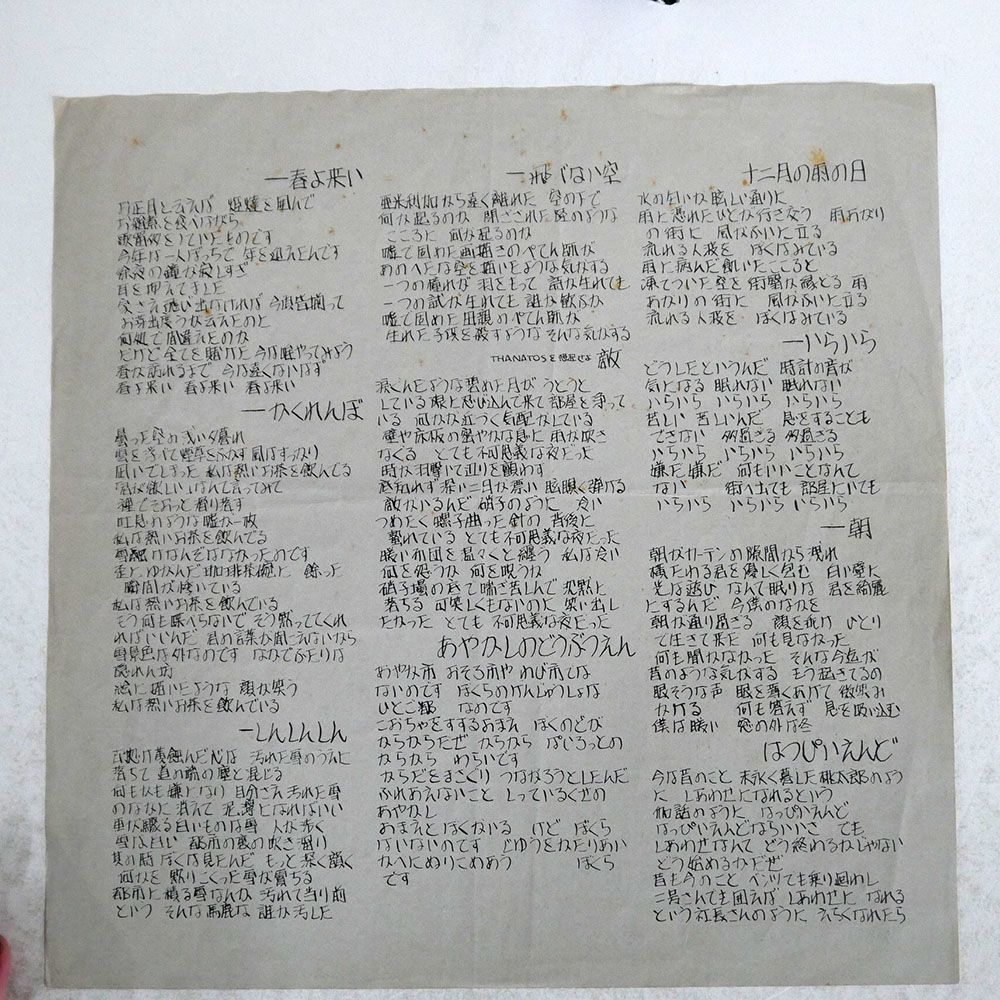 一春よ来い
お正月と云えば 炬燵を囲んで
お雑煮を食べながら
歌留多をしていたものです
今年は一人ぼっちで 年を迎えたんです
除夜の鐘が寂しすぎ
耳を押えてました
家さえ飛び出なければ 今頃皆揃って
お芽出度うが云えたのに
何処で間違えたのか
だけど全てを賭けた 今は唯やってみよう
春が訪れるまで 今は遠くないはず
春よ来い 春よ来い 春よ来い
一かくれんぼ
曇った空の浅い夕暮れ
雲を浮べて煙草をふかす 風はすっかり
凪いでしまった 私は熱いお茶を飲んでる
君が欲しい なんて言ってみて
裡でそおっと滑り落す
吐息のような嘘が一枚
私は熱いお茶を飲んでる
雪融けなんぞはなかったのです
歪にゆがんだ珈琲茶碗に 餘った
瞬間が悸いている
私は熱いお茶を飲んでいる
もう何も喋べらないで そう黙っててくれ
ればいいんだ 君の言葉が聞こえないから
雪景色は外なのです なかでふたりは
隠れん坊
絵に描いたような 顔が笑う
私は熱いお茶を飲んでいる
一しんしんしん
古惚け黄蝕んだ心は 汚れた雪のうえに
落ちて 道の端の塵と混じる
何もかも嫌になり 自分さえ汚れた雪
のなかに消えて 泥濘になればいい
車が驕る白いものは雪 人が歩く
雪は白い 都市の裏の吹き溜り
其の時 ぼくは見たんだ もっと深く韻く
何かを 黙りこくった雪が費ちる
都市に積る雪なんか 汚れて当り前
という そんな馬鹿な 誰が汚した
一飛べない空
亜米利加から遠く離れた 空の下で
何が起るのか 閉ざされた陸のような
こころに 何が起るのか
嘘で固めた画描きのぺてん肌が
あのへたな空を描いたような気がする
一つの憧れが 羽をもって 詰な生れても
一つの試が生れても 誰が歓ぶか
嘘で固めた母親のぺてん肌が
生れた子供を殺すような そんな気がする
THANATOSを想起せよ 敵
泥くんだような碧めた月が うとうと
している眼に忍び込んで来て 部屋を浮って
いる 何かが近づく気配がしている
壁や床板の蜜やかな息に 風が吹き
なぐる とても不可思議な夜だった
時が羽撃いて辺りを顧わす
底知れず 深い二日の漂い 眩瞑く弾ける
敵がいるんだ 硝子のように 冷い
つめたく 螺子曲った針の 背後に
匿れている とても不可思議な夜だった
暖い布団を温々と纏う 私は冷い
何を怨うか 何を呪うか
硝子壜の底で喘ぎ苦しんで 犯黙に
落ちる 可笑しくもないのに 笑い出し
たかった とても 不可思議な夜だった
あやかしのどうぶつえん
あやか市 おそろ市や わび市では
ないのです ぼくらのげんじゅうしょは
ひとご都 なのです
こおちゃをすするおまえ ぼくのどが
からからだぜ からから ぱいろっとの
からから わらいです
からだをまさぐり つながろうとしたんだ
ふれあえないこと しっているくせの
あやかし
おまえと ぼくがいる けど ぼくら
はいないのです じゆうをかたりあい
かべにぬりこめあう ぼくら
です
十二月の雨の日
水の匂いが眩しい通りに
雨に憑れたひとが行き交う 雨あがり
の街に 風がふいに立る
流れる人波を ぼくはみている
雨に病んだ飢いたこころと
凍てついた空を街翳が縁どる 雨
あがりの街に 風がふいに立る
流れる人波を ぼくはみている
一いらいら
どうしたというんだ 時計の音が
気になる 眠れない 眠れない
いらいら いらいら いらいら
苦しい 苦しいんだ 息をすることも
できない 多過ぎる 多過ぎる
いらいら いらいら いらいら
嫌だ 嫌だ 何もいいことなんて
ない 街へ出ても 部屋にいても
いらいら いらいら いらいら
一朝
朝がカーテンの隙間から洩れ
横たわる君を優しく包む 白い壁に
光は遊び なんて眠りは 君を綺麗
にするんだ 今僕のなかを
朝が通り過ぎる 顔を充け ひとり
で生きて来た 何も見なかった
何も聞かなかった そんな今迄が
昔のような気がする もう起きてるの
眠そうな声 眼を薄くあけて 微笑み
かける 何も答えず 息を吸い込む
僕は暖い 窓の外は冬
はっぴいえんど
今は昔のこと 末永く暮した桃太郎のよう
に しあわせになれるという
佈話のように はっぴいえんど
はっぴいえんどならいいさ でも
しあわせなんて どう終わるかじゃない
どう始めるかだぜ
昔も今のこと ベンツでも乗り廻わし
二号さんでも囲えば しあわせに なれる
という社長さんのように えらくなれたら